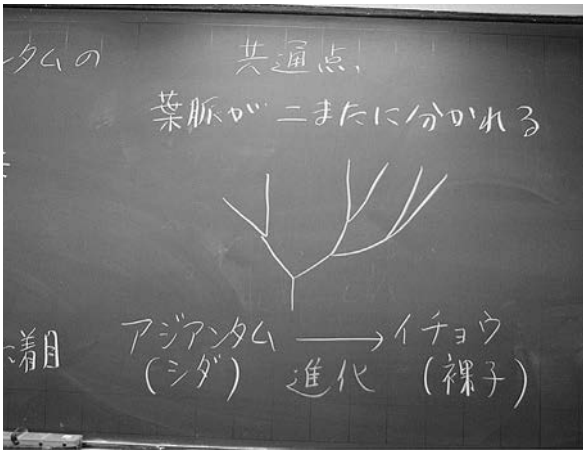 ンタムの
共通点、
葉脈が二またに分かれる
着目
アジアンタム → イチョウ
(シダ) 進化 (裸子)